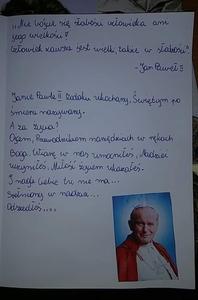 ,,Nie bójcie się słabości człowieka ani
jego wielkości!
Człowiek zawsze jest wielki, także w słabości"
- Jan Paweł II
Janie Pawle II Rodaku ukochany, Świętym po
śmierci nazywany.
A za życia?
Ojcem, Przewodnikiem narzędziach w rękach
Boga. Wiarę w nas umocniłeś, Nadzieję
uczyniłeś, Miłość życiem ukazałeś.
I nagle Ciebie tu nie ma...
Spełniony w nadziei...
Odszedłeś....